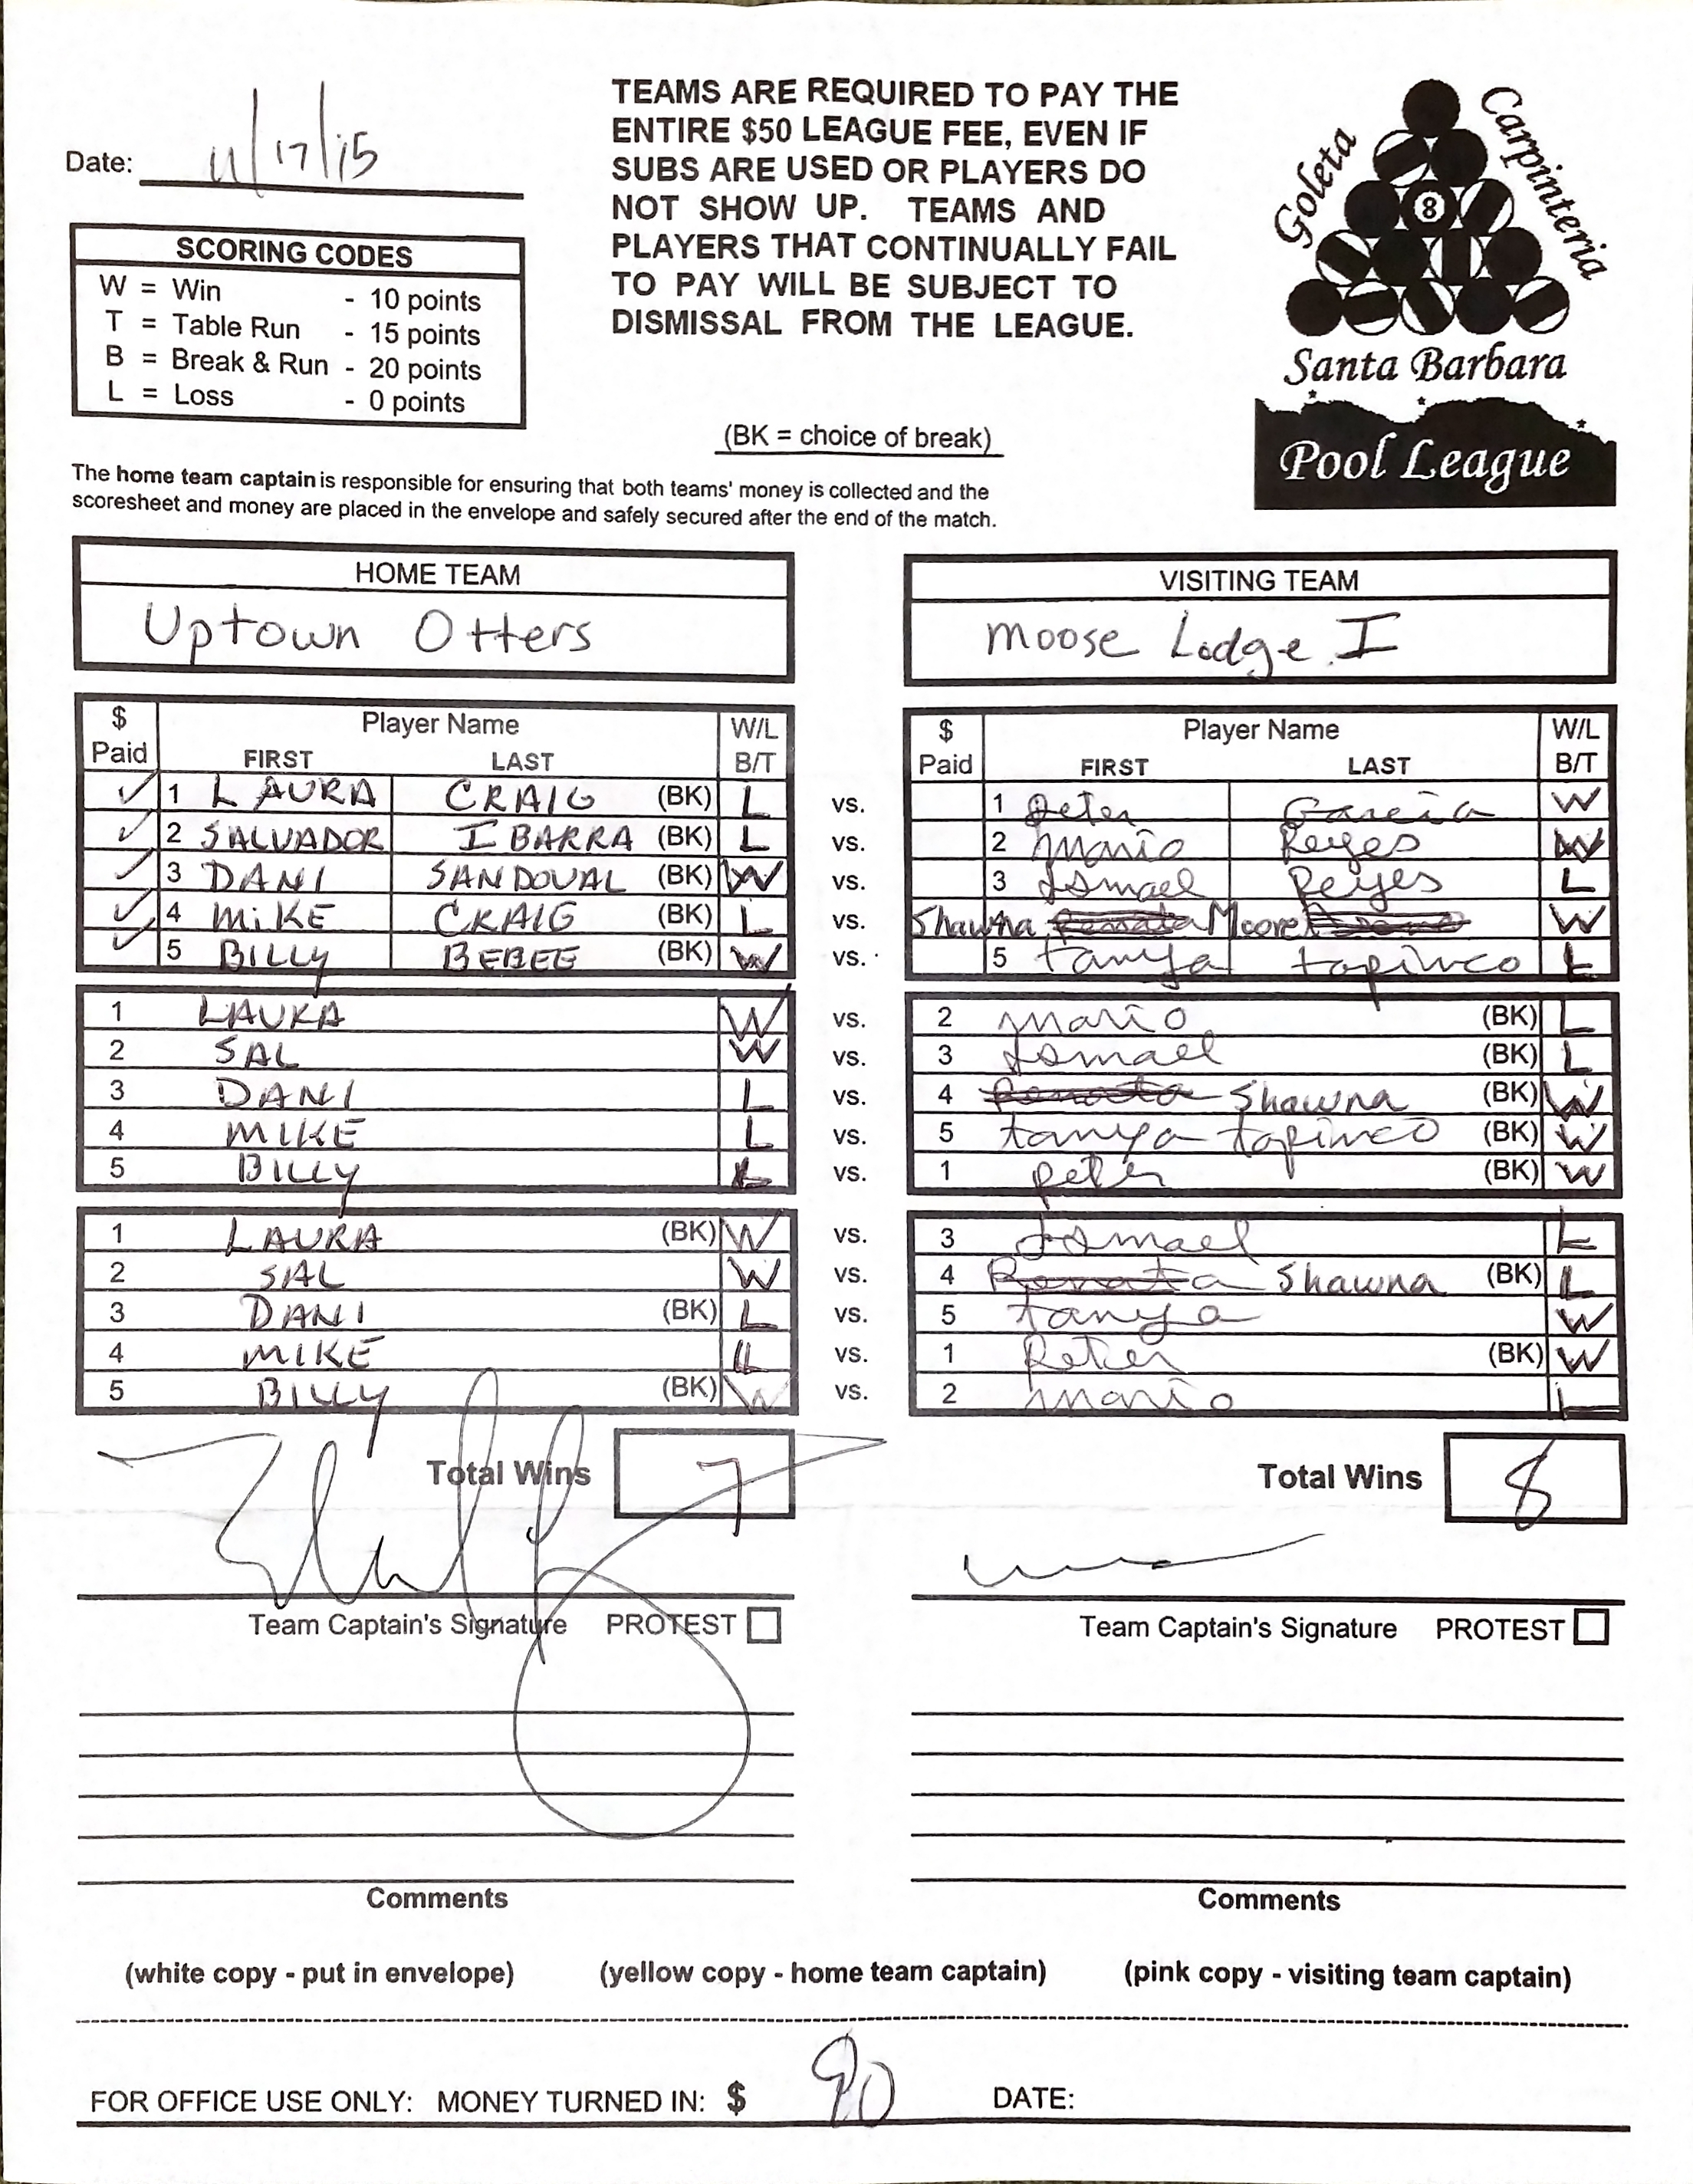 Date: 11/17/15
TEAMS ARE REQUIRED TO PAY THE
ENTIRE $50 LEAGUE FEE, EVEN IF
SUBS ARE USED OR PLAYERS DO
NOT SHOW UP. TEAMS AND
PLAYERS THAT CONTINUALLY FAIL
TO PAY WILL BE SUBJECT TO
DISMISSAL FROM THE LEAGUE.
Goleta
Carpinteria
8
Santa Barbara
Pool League
SCORING CODES
W = Win - 10 points
T = Table Run - 15 points
B = Break & Run - 20 points
L = Loss - 0 points
(BK = choice of break)
The home team captain is responsible for ensuring that both teams' money is collected and the
scoresheet and money are placed in the envelope and safely secured after the end of the match.
HOME TEAM VISITING TEAM
Uptown Otters Moose Lodge I
$ Player Name W/L $ Player Name W/L
Paid FIRST LAST B/T Paid FIRST LAST B/T
1 LAURA CRAIG (BK) L vs. 1 Peter Garcia W
2 SALVADOR IBARRA (BK) L vs. 2 Mario Reyes W
3 DANI SANDOVAL (BK) W vs. 3 Ismael Reyes L
4 MIKE CRAIG (BK) L vs. Shawna Moore W
5 BILLY BEBEE (BK) W vs. 5 tanya topinco L
1 LAURA W vs. 2 mario (BK) L
2 SAL W vs. 3 Ismael (BK) L
3 DANI L vs. 4 Renata Shawna (BK) W
4 MIKE L vs. 5 tanya topinco (BK) W
5 BILLY L vs. 1 peter (BK) W
1 LAURA (BK) W vs. 3 Ismael L
2 SAL W vs. 4 Renata Shawna (BK) L
3 DANI (BK) L vs. 5 tanya W
4 MIKE L vs. 1 Peter (BK) W
5 BILLY (BK) W vs. 2 mario L
Total Wins 7 Total Wins 8
Team Captain's Signature PROTEST Team Captain's Signature PROTEST
Comments Comments
(white copy - put in envelope) (yellow copy - home team captain) (pink copy - visiting team captain)
FOR OFFICE USE ONLY: MONEY TURNED IN: $ 90 DATE: